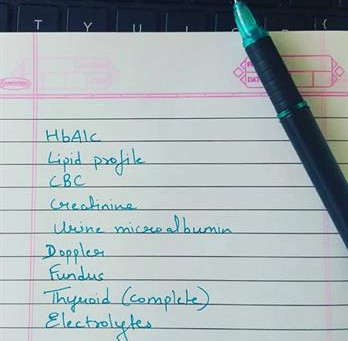 HbA1c
Lipid profile
CBC
Creatinine
Urine microalbumin
Doppler
Fundus
Thyroid (complete)
Electrolytes